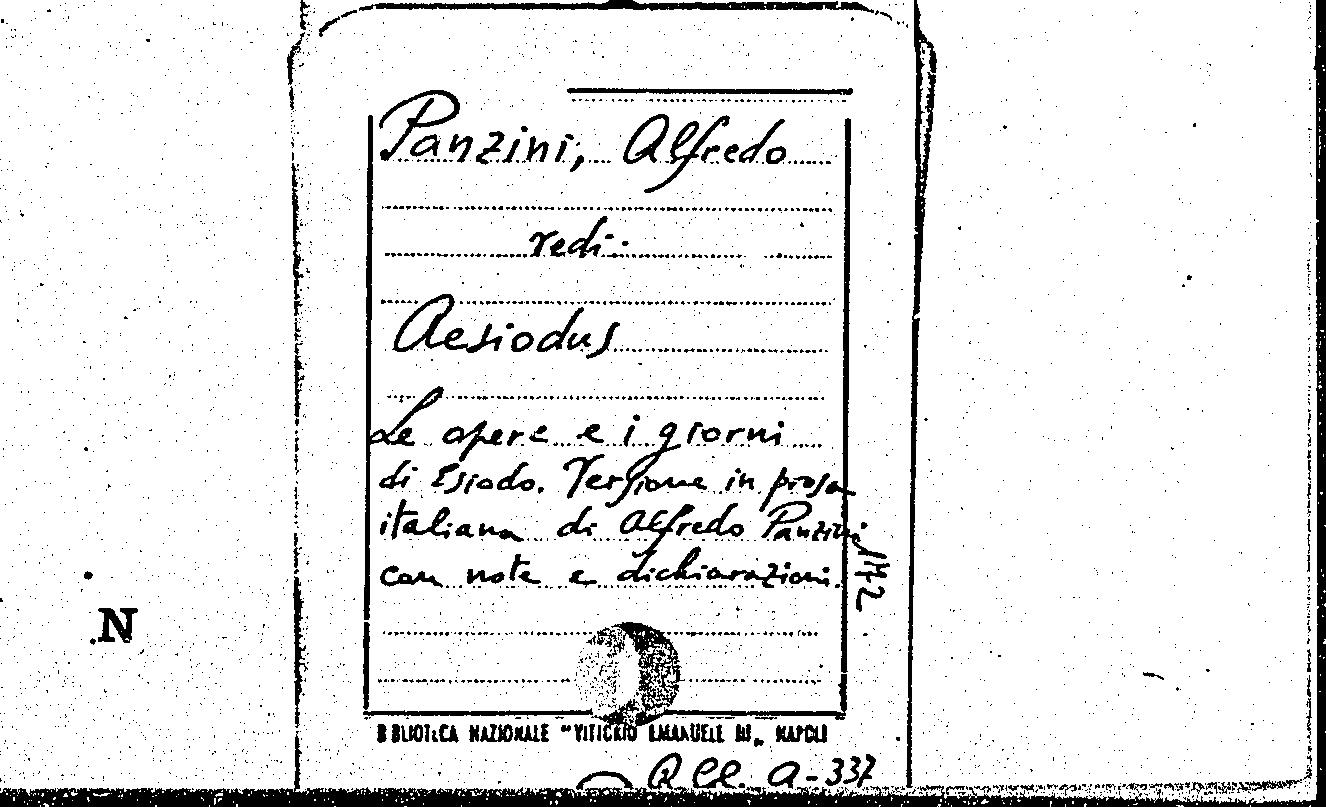 Panzini, Alfredo
vedi:
Aesiodus
Le opere e i giorni
di Esiodo. Versione in prosa
italiana di Alfredo Panzini
con note e dichiarazioni.
N
BIBLIOTECA NAZIONALE "VITTORIO EMANUELE III" NAPOLI
a-337